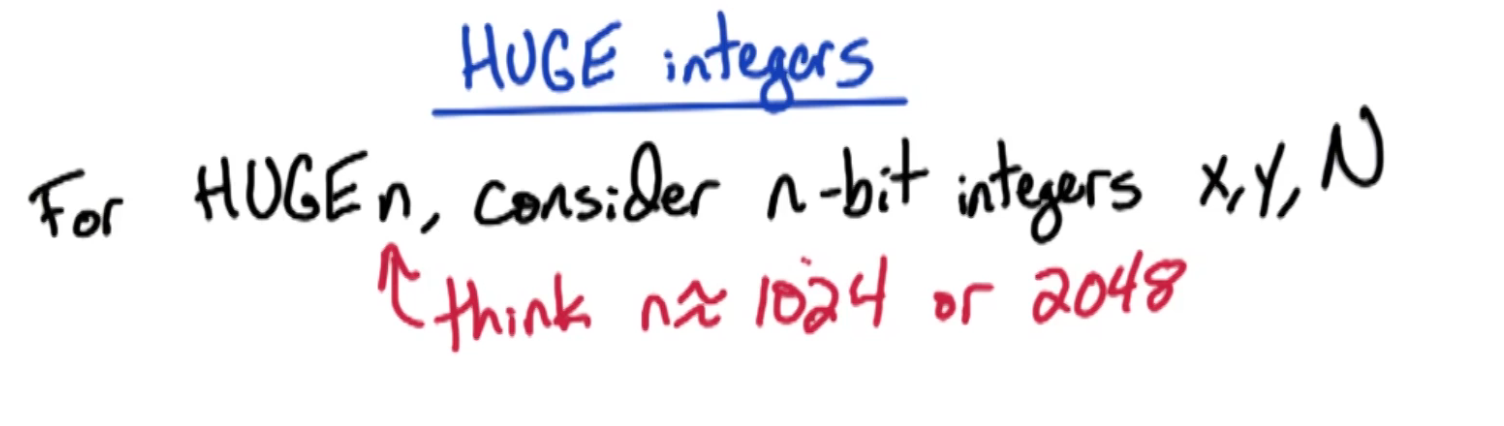 HUGE integers
For HUGE n, consider n-bit integers x, y, N
think n≈ 1024 or 2048